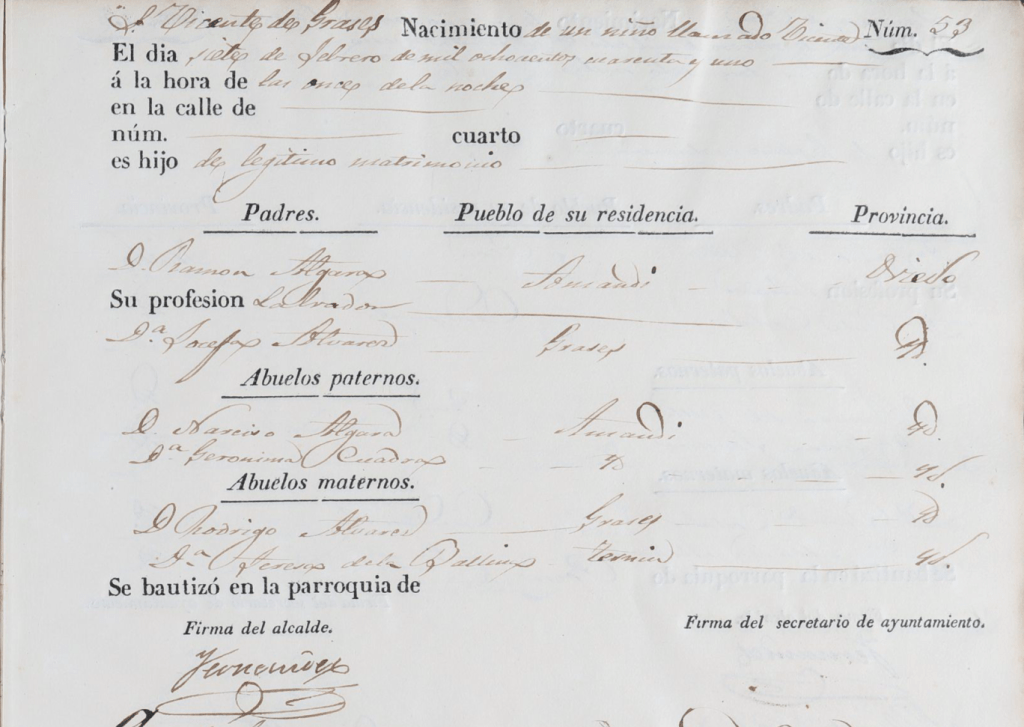 Sn. Vicente de Grases Nacimiento de un niño llamado Vicente Núm. 53
El dia siete de febrero de mil ochocientos cuarenta y uno
á la hora de las once de la noche
en la calle de
núm. cuarto
es hijo de legitimo matrimonio
Padres. Pueblo de su residencia. Provincia.
D. Ramon Algara Amandi Oviedo
Su profesion Labrador
D.a Josefa Alvarez Grases Yd.
Abuelos paternos.
D. Narciso Algara Amandi Yd.
D.a Geronima Cuadra Yd Yd.
Abuelos maternos.
D Rodrigo Alvarez Grases Yd
D.a Teresa de la Ballina Yd.
Se bautizó en la parroquia de
Firma del alcalde. Firma del secretario de ayuntamiento.
Fernandez